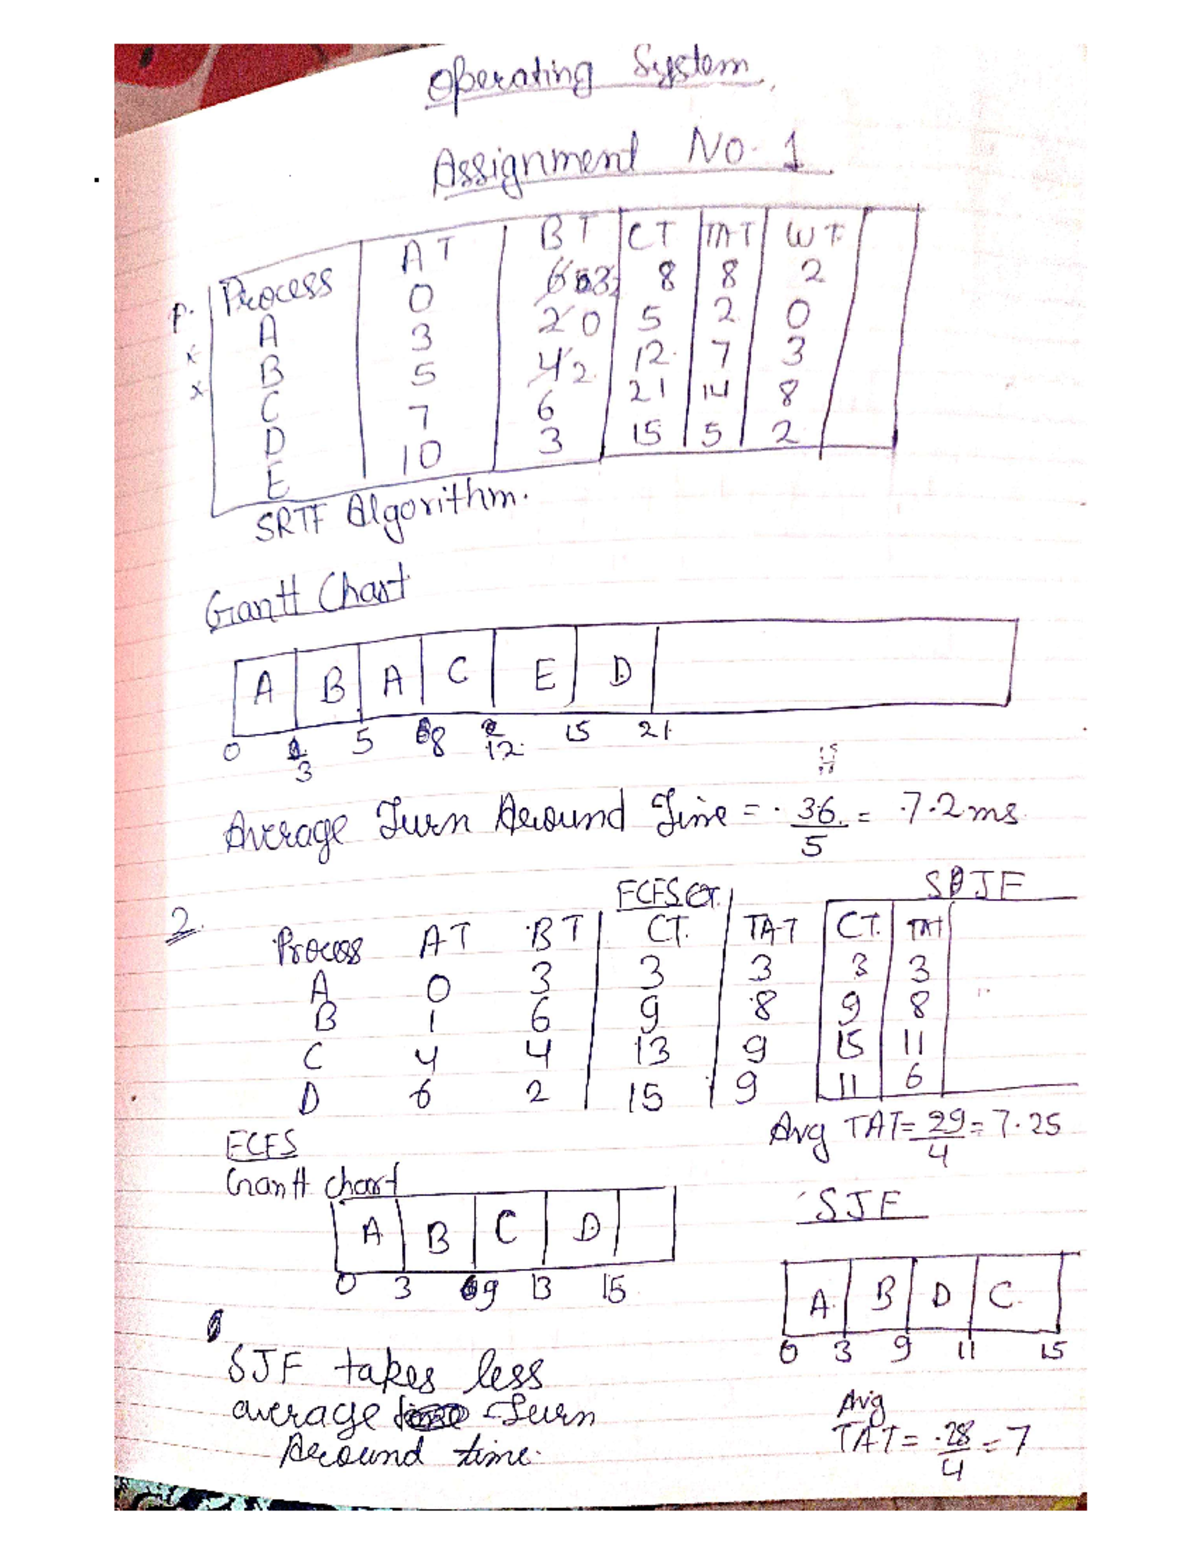 Operating System
Assignment No. 1
Process AT BT CT TAT WT
A 0 6 3 8 8 2
B 3 2 0 5 2 0
C 5 4 2 12 7 3
D 7 6 21 14 8
E 10 3 15 5 2
SRTF Algorithm.
Gantt Chart
A B A C E D
0 3 5 8 12 15 21
Average Turn Around Time = 36/5 = 7.2 ms
2.
FCFS SJF
Process AT BT CT. TAT CT. TAT
A 0 3 3 3 3 3
B 1 6 9 8 9 8
C 4 4 13 9 15 11
D 6 2 15 9 11 6
Avg TAT = 29/4 = 7.25
FCFS
Gantt chart
A B C D
0 3 9 13 15
SJF
A B D C
0 3 9 11 15
SJF takes less
average Turn
Around time.
Avg
TAT = 28/4 = 7